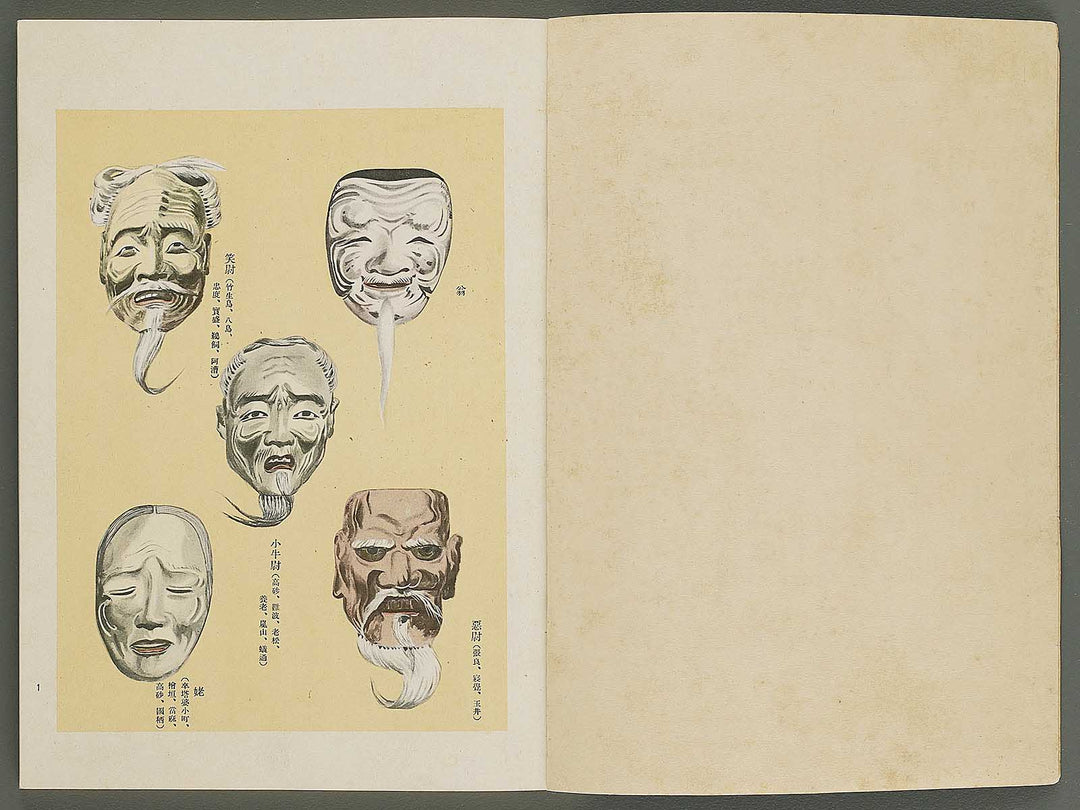 翁
笑尉(竹生島、八島、
忠度、實盛、鵜飼、阿漕)
小牛尉(高砂、難波、老松、
養老、嵐山、蟻通)
惡尉(張良、寢覺、玉井)
姥
(卒塔婆小町、
檜垣、當麻、
高砂、國栖)
1